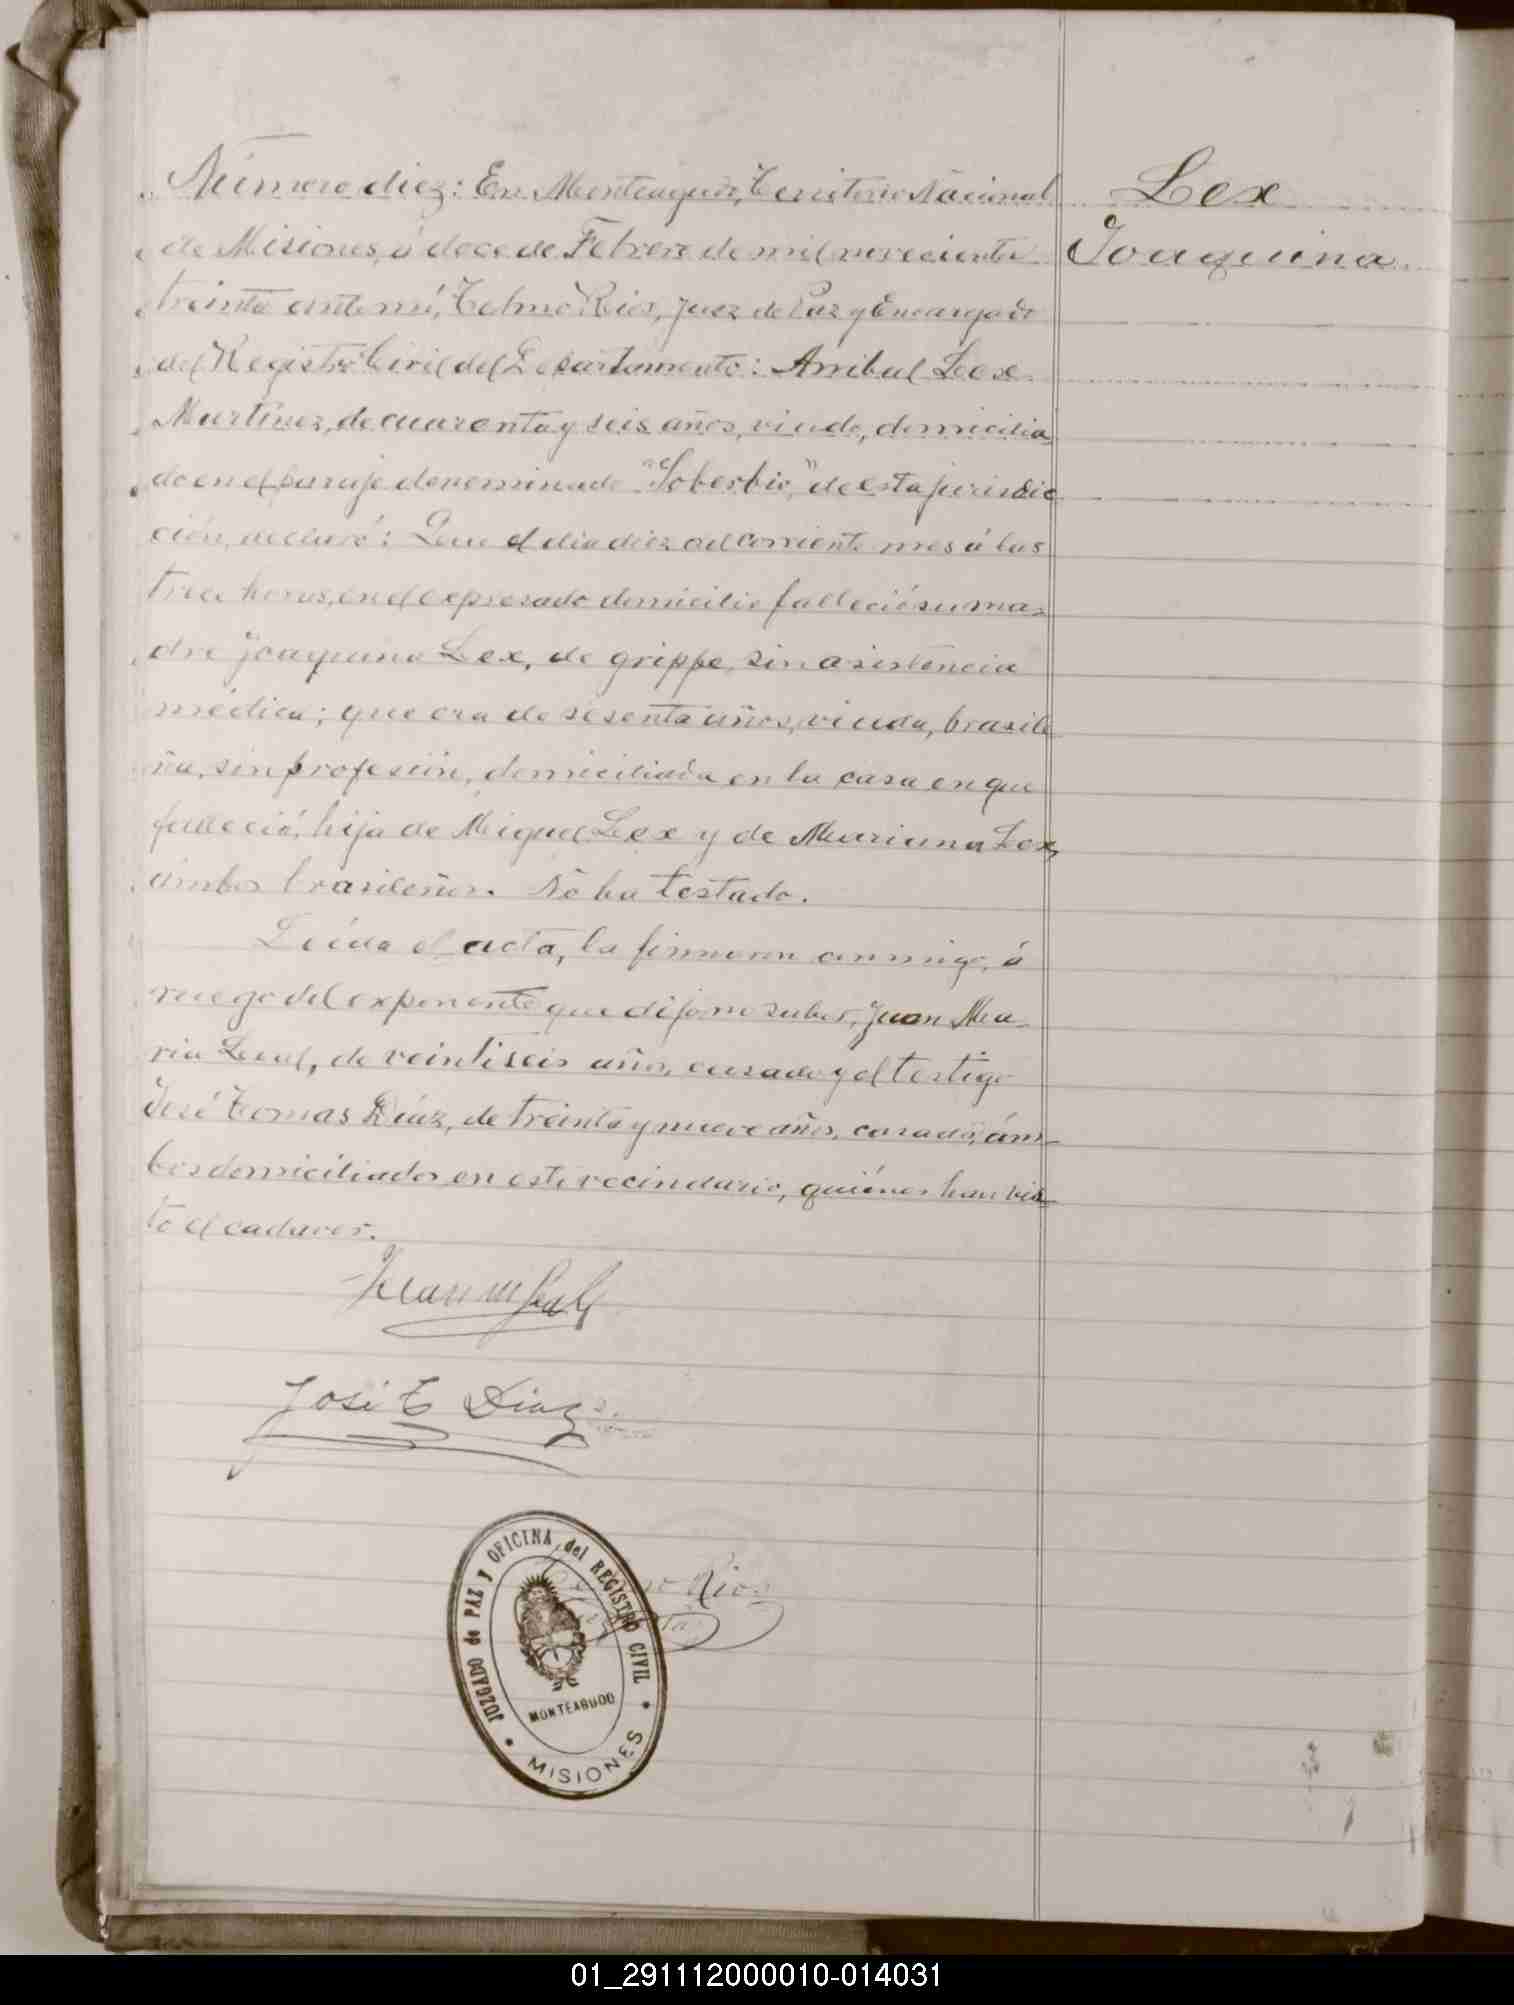 Número diez: En Monteagudo, Territorio Nacional
Lex
de Misiones, á doce de Febrero de mil novecientos
Joaquina
treinta ante mí, Telmo Rios, Juez de Paz y Encargado
del Registro Civil del Departamento: Anibal Lex
Martinez, de cuarenta y seis años, viudo, domicilia
do en el paraje denominado "Soberbio," de esta jurisdic
ción, declaró: Que el dia diez del corriente mes á las
tres horas, en el expresado domicilio falleció su ma=
dre Joaquina Lex, de grippe, sin asistencia
médica; que era de sesenta años, viuda, brasile
ña, sin profesión, domiciliada en la casa en que
falleció, hija de Miguel Lex y de Mariana Lex,
ámbos brasileños. No ha testado.
Leída el acta, la firmaron conmigo, á
ruego del exponente que dijo no saber, Juan Ma-
ria Leal, de veintiseis años, casado y el testigo
José Tomas Diaz, de treinta y nueve años, casado, ám-
bos domiciliados en este vecindario, quiénes han vis-
to el cadaver.
Juan M Leal
José T Diaz
Telmo Rios
JUZGADO de PAZ y OFICINA del REGISTRO CIVIL
MONTEAGUDO
MISIONES
01_291112000010-014031